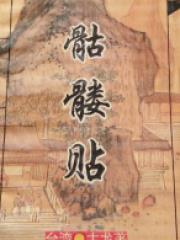 骷
髅
贴
台湾